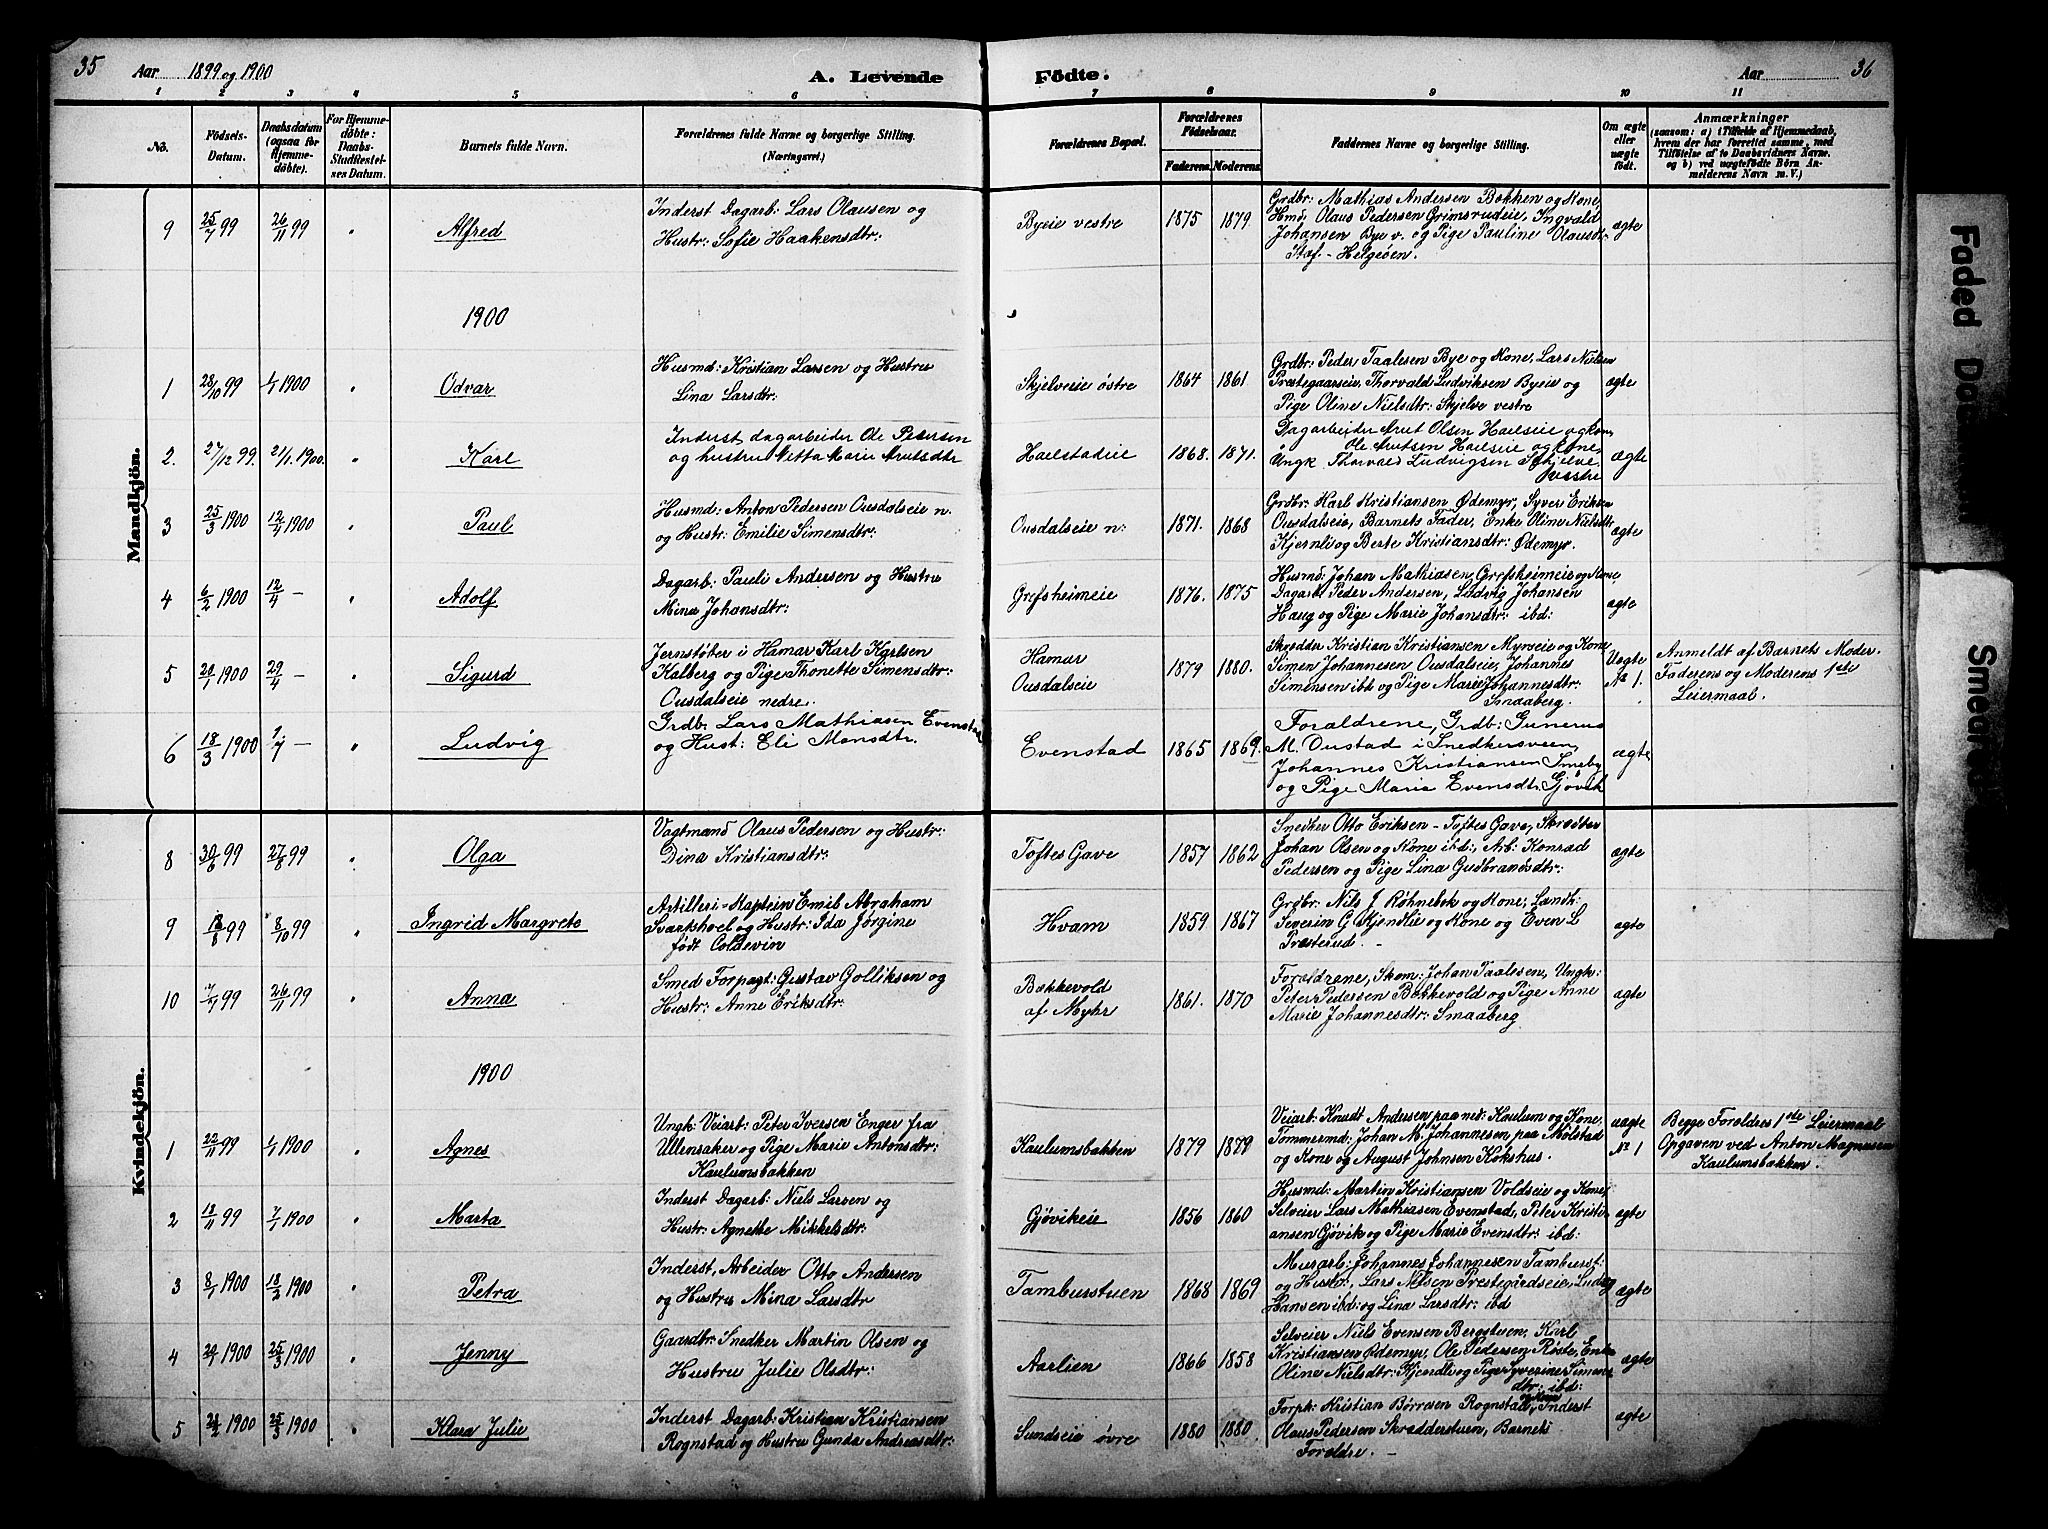 35 Aar 1899 og 1900 A. Levende Fødte. Aar 36
1 2 3 4 5 6 7 8 9 10 11
No.
Födsels-
Datum.
Daabsdatum
(ogsaa for
Hjemme-
döbte).
For Hjemme-
döbte:
Daabs-
Stadfæstel-
ses Datum.
Barnets fulde Navn.
Forældrenes fulde Navne og borgerlige Stilling.
(Næringsvei.)
Forældrenes Bopæl.
Forældrenes
Fødselsaar.
Faderens. Moderens.
Faddernes Navne og borgerlige Stilling.
Om ægte
eller
uægte
födt.
Anmærkninger
(saasom: a) i Tilfælde af Hjemmedaab,
hvem der har forrettet samme, med
Tilföielse af to Daabsvidners Navne,
og b) ved uægtefödte Börn An-
melderens Navn m. V.)
Mandkjön.
9 25/7 99 26/11 99 " Alfred
Inderst Dagarb: Lars Olausen og
Hustr: Sofie Haakensdtr:
Byeie vestre 1875 1879
Grdbr: Mathias Andersen Bakken og Kone,
Hmd: Olaus Pedersen Grimsrudeie, Ingvald
Johansen Bye v. og Pige Pauline Olausdtr
Staf - Helgeöen.
ægte
1900
1 28/10 99 1/1 1900 " Odvar
Husmd: Kristian Larsen og Hustru
Lina Larsdtr:
Skjelveie østre 1864 1861
Grdbr: Peder Taalesen Bye og Kone, Lars Nielsen
Præstegaardseie, Thorvald Ludviksen Byeie og
Pige Oline Nielsdtr: Skjelve vestre
ægte
2. 27/12 99. 21/1. 1900. " Karl
Inderst, dagarbeider Ole Petersen
og hustru Netta Marie Arntsdtr
Haelstadeie 1868. 1871.
Dagarbeider Arnt Olsen Haelseie og Kone,
Ole Arntsen Haelseie og Kone,
Ungk Thorvald Ludvigsen Skjelve
vestre
ægte
3 25/3 1900 12/4 1900 " Paul
Husmd: Anton Pedersen Ousdalseie n.
og Hustr: Emilie Simensdtr:
Ousdalseie n: 1871. 1868
Grdbr: Karl Kristiansen Ødemyr, Syver Eriksen
Ousdalseie, Barnets Fader, Enke Oline Nielsdtr
Kjernli og Berte Kristiansdtr: Ødemyr.
ægte
4 6/2 1900 12/4 - " Adolf
Dagarb: Pauli Andersen og Hustru
Mina Johansdtr:
Grefsheimeie 1876. 1875
Husmd: Johan Mathiasen, Grefsheimeie og Kone,
Dagarb: Peder Andersen, Ludvig Johansen
Haug og Pige Marie Johansdtr: ibd:
ægte
5 20/1 1900 29/4 - " Sigurd
Jernstøber i Hamar Karl Karlsen
Kalberg og Pige Thonette Simensdtr:
Ousdalseie nedre.
Hamar
Ousdalseie
1879 1880.
Skrædder Kristian Kristiansen Myrseie og Kone
Simen Johannesen Ousdalseie, Johannes
Simensen ibd og Pige Marie Johannesdtr:
Smaaberg.
Uægte
No 1.
Anmeldt af Barnets Moder.
Faderens og Moderens 1ste
Leiermaal.
6 18/3 1900 1/7 - " Ludvig
Grdb. Lars Mathiasen Evenstad
og Hust: Eli Monsdtr.
Evenstad 1865 1869.
Forældrene, Grdb: Gunerus
M. Oustad i Snedkersveen,
Johannes Kristiansen Smeby
og Pige Marie Evensdtr. Gjøvik
ægte
Kvindekjön.
8 30/6 99 27/8 99 " Olga
Vagtmand Olaus Pedersen og Hustr:
Dina Kristiansdtr:
Toftes Gave 1857 1862
Snedker Otto Eriksen - Toftes Gave, Skrædder
Johan Olsen og Kone ibd:, Arb: Konrad
Pedersen og Pige Lina Gudbrandsdtr:
ægte
9 8/10 99 " Ingrid Margrete
Artilleri-Kaptein Emil Abraham
Svartshoel og Hustr: Ida Jørgine
født Coldevin
Hvam 1859 1867
Grdbr: Nils J. Røhnebek og Kone, Landh:
Severin G Skjendlie og Kone og Even L
Præsterud. -
ægte
10 99 26/11 99 " Anna
Smed Forpagt: Gustav Golliksen og
Hustr: Anne Eriksdtr:
Bækkevold
af Myhr
1861. 1870
Forældrene, Skom: Johan Taalesen, Ungk:
Peter Pedersen Bækkevold og Pige Anne
Marie Johannesdtr: Smaaberg
ægte
1900
1 22/11 99 1/1 1900 " Agnes
Ungk: Veiarb: Peter Iversen Enger fra
Ullensaker og Pige Marie Antonsdtr:
Kaulumsbakken
Kaulumsbakken 1879 1879
Veiarb: Knudt Andersen paa ned: Kaulum og Kone,
Tømmermd: Johan M. Johannesen paa Mølstad
og Kone og August Johnsen Kokshus.
uægte
No 1
Begge Forældres 1ste Leiermaal
Opgaven ved Anton Magnusen
Kaulumsbakken.
2 18/11 99 7/1 1900 " Marta
Inderst Dagarb: Niels Larsen og
Hustr: Agnethe Mikkelsdtr:
Gjøvikeie 1856 1860
Husmd: Martin Kristiansen Voldseie og Kone,
Selveier Lars Mathiasen Evenstad, Peter Kristi-
ansen Gjøvik og Pige Marie Evensdtr: ibd:
ægte
3 8/1 1900 18/2 1900 " Petra
Inderst, Arbeider Otto Andersen
og Hustru Mina Larsdtr
Tamburstuen 1868 1869
Murarb: Johannes Johannesen Tamburst:
og Hustr, Lars Nilsen Prestegårdseie, Ludvig
Hansen ibd: og Lina Larsdtr: ibd
ægte
4 20/1 1900 25/3 1900 " Jenny
Gaardbr: Snedker Martin Olsen og
Hustru Julie Olsdtr:
Aarlien 1866 1858
Selveier Niels Evensen Bergstuen, Karl
Kristiansen Ødemyr, Ole Pedersen Røste, Enke
Oline Nielsdtr: Kjendli og Pige Syverine Simens
dtr: ibd:
ægte
5 24/2 1900 25/3 1900 " Klara Julie
Inderst Dagarb: Kristian Kristiansen
Rognstad og Hustru Gunda Andreasdtr:
Sundseie øvre 1880 1880
Forpk: Kristian Børresen Rognstad og Kone, Inderst
Olaus Pedersen Skrædderstuen, Barnets
Forældre. -
ægte
Faded